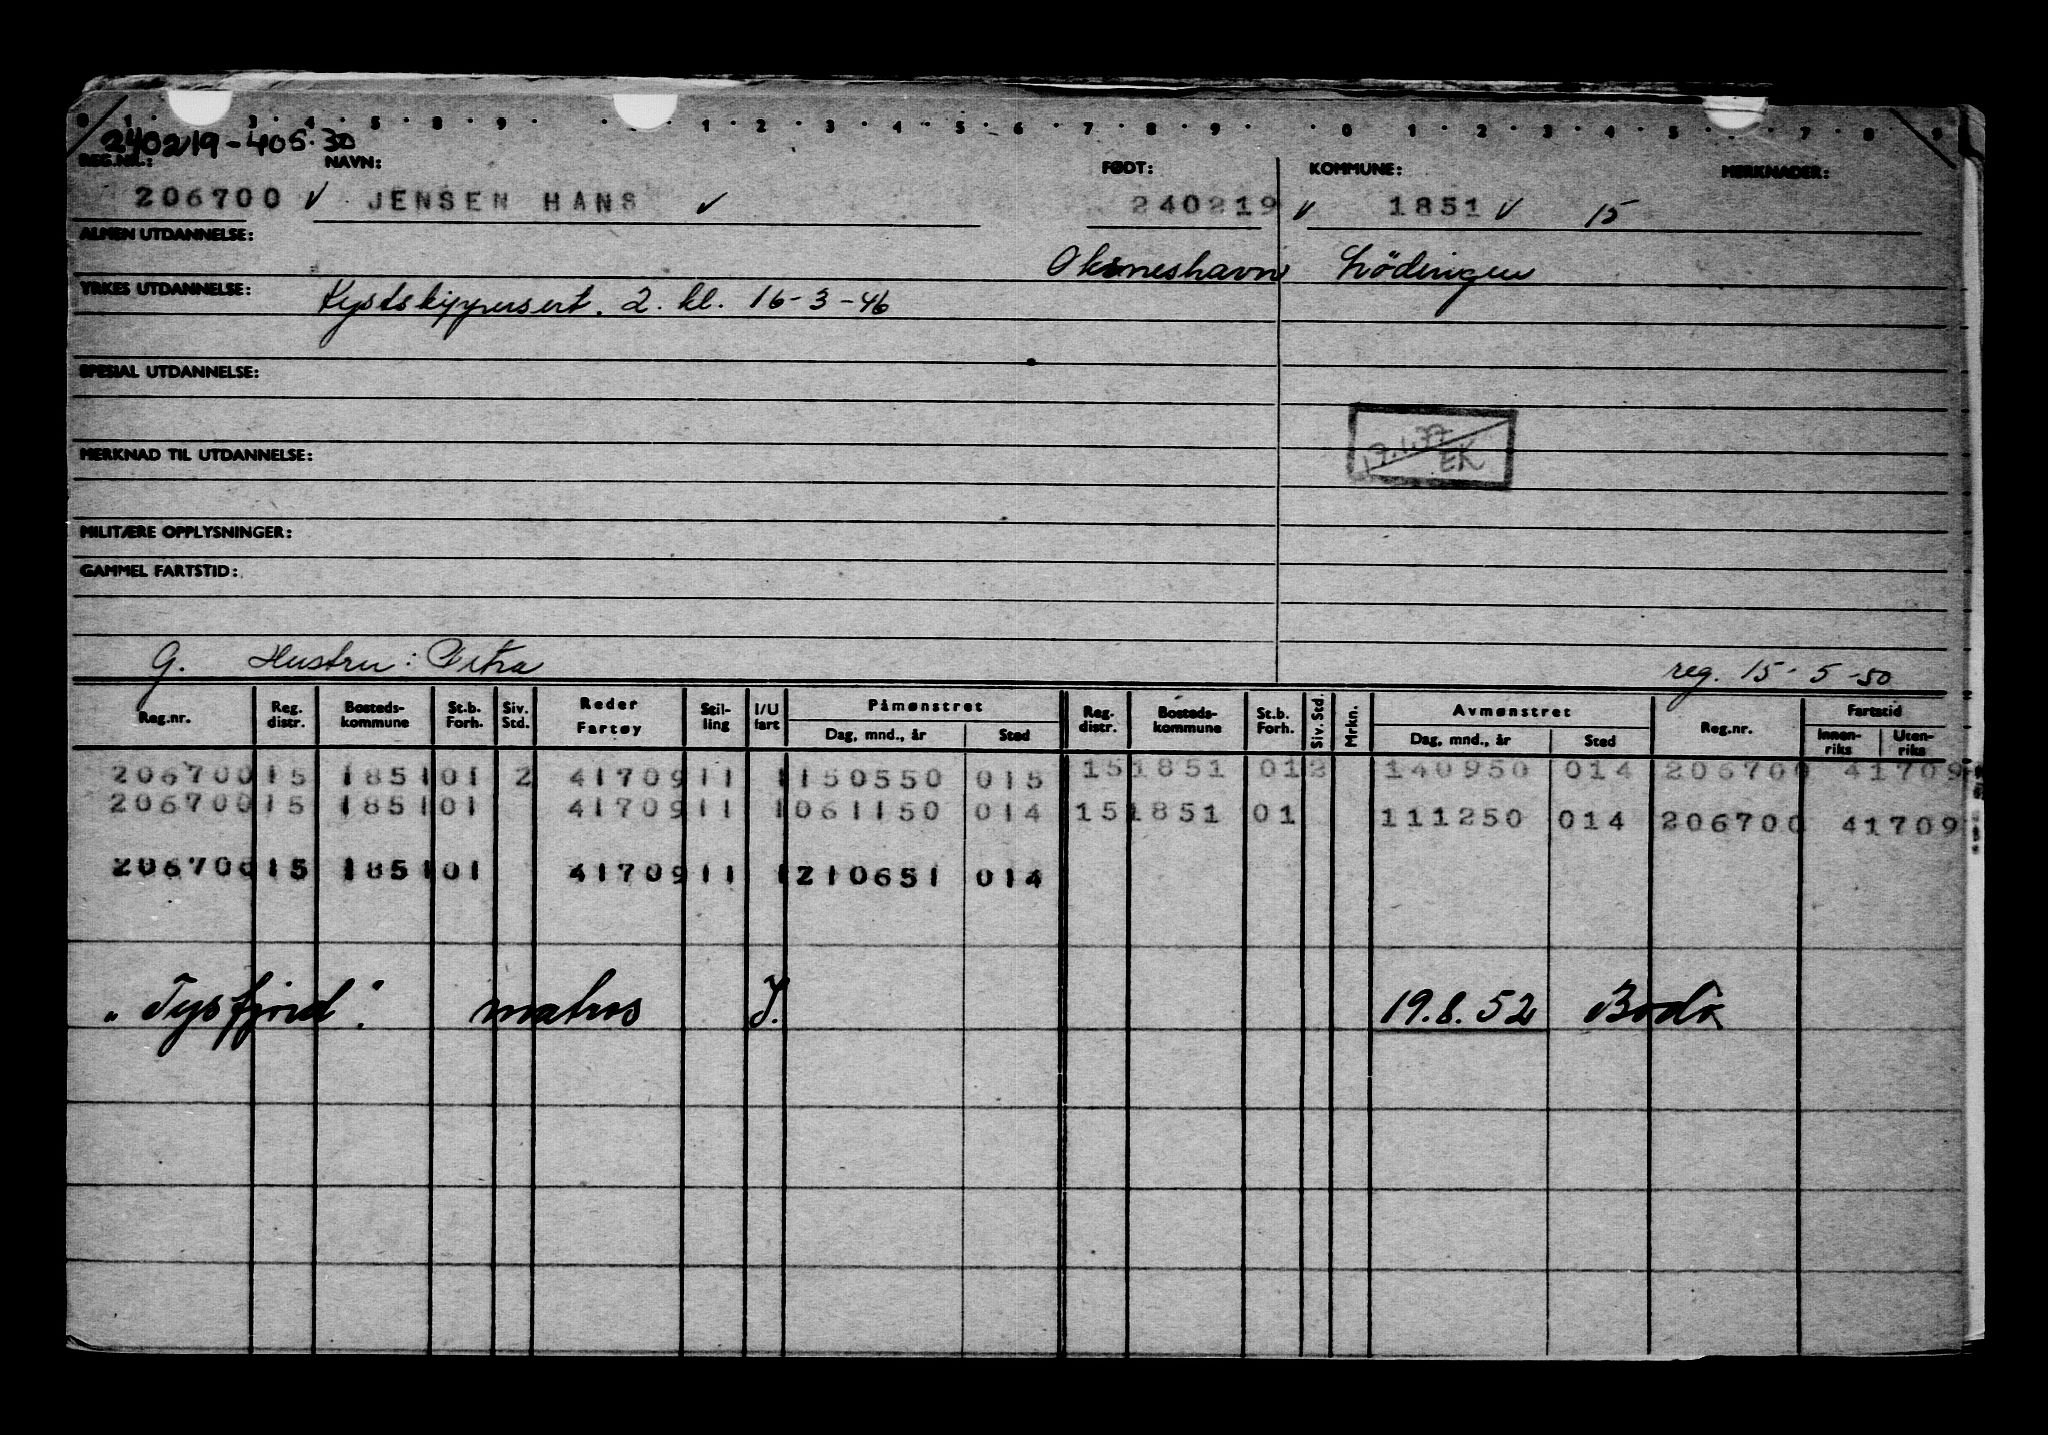 0 1 3 4 5 8 9 1 2 3 4 5 6 7 8 9 0 1 2 3 4 5 7 8 9
240219-405.30
REG.NR.: NAVN: FØDT: KOMMUNE: MERKNADER:
206700 ✓ JENSEN HANS ✓ 240219 ✓ 1851 ✓ 15
ALMEN UTDANNELSE:
Oksneshavn Lödingen
YRKES UTDANNELSE: Kystskippersert. 2. kl. 16-3-46
SPESIAL UTDANNELSE:
17.1.77
EK
MERKNAD TIL UTDANNELSE:
MILITÆRE OPPLYSNINGER:
GAMMEL FARTSTID:
G. Hustru: Petra reg. 15-5-50
Reg.nr. Reg. distr. Bosteds-kommune St.b. Forh. Siv. Std. Reder Fartøy Stil-ling I/U fart Påmønstret Dag, mnd., år Sted Reg. distr. Bosteds-kommune St.b. Forh. Siv. Std. Mrkn. Avmønstret Dag, mnd., år Sted Reg.nr. Fartstid Innen-riks Uten-riks
206700 15 1851 01 2 41709 11 1 150550 015 15 1851 01 2 140950 014 206700 41709
206700 15 1851 01 41709 11 1 061150 014 15 1851 01 111250 014 206700 41709
206700 15 1851 01 41709 11 1 210651 014
"Tysfjord". matros I. 19.8.52 Bodø